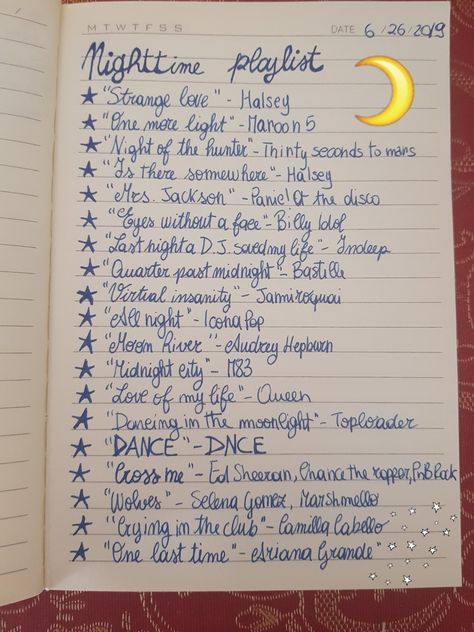 M T W T F S S DATE 6/26/2019
Nighttime playlist
★ "Strange love" - Halsey
★ "One more light" - Maroon 5
★ "Night of the hunter" - Thinty seconds to mars
★ "Is there somewhere" - Halsey
★ "Mrs. Jackson" - Panic! At the disco
★ "Eyes without a face" - Billy Idol
★ "Last night a D.J. saved my life" - Indeep
★ "Quarter past midnight" - Bastille
★ "Virtual insanity" - Jamiroquai
★ "All night" - Icona Pop
★ "Moon River" - Audrey Hepburn
★ "Midnight city" - M83
★ "Love of my life" - Queen
★ "Dancing in the moonlight" - Toploader
★ "DANCE" - DNCE
★ "Cross me" - Ed Sheeran, Chance the rapper, PnB Rock
★ "Wolves" - Selena Gomez, Marshmello
★ "Crying in the club" - Camilla Cabello
★ "One last time" - Ariana Grande"